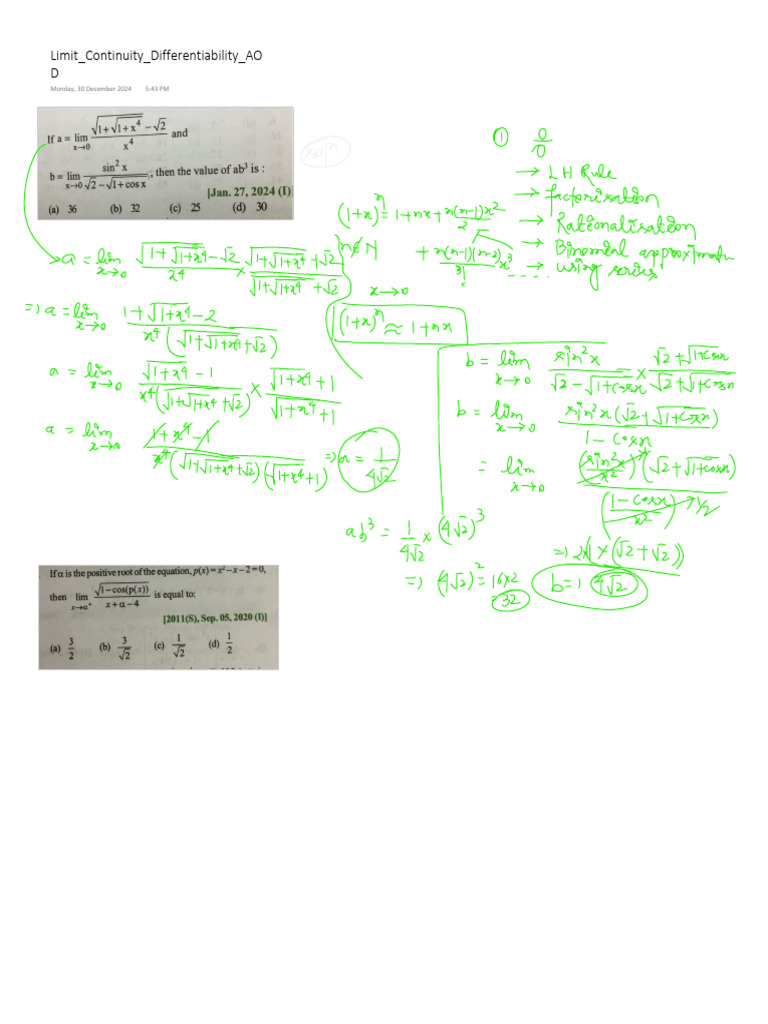 Limit_Continuity_Differentiability_AO
D
Monday, 30 December 2024 5:43 PM
If a = lim x→0 (√(1+√(1+x⁴)) − √2)/x⁴ and
b = lim x→0 sin²x/(√2 − √(1+cos x)), then the value of ab³ is :
[Jan. 27, 2024 (I)]
(a) 36 (b) 32 (c) 25 (d) 30
① 0/0
→ LH Rule
→ factorisation
→ Rationalisation
→ Binomial approximatn
→ using series
(1+x)ⁿ = 1+nx+n(n-1)x²/2
+ n(n-1)(n-2)/3! x³ ....
n∉N
x→0
(1+x)ⁿ ≈ 1+nx
→ a = lim x→0 (√(1+√(1+x⁴)) − √2)/x⁴ × (√(1+√(1+x⁴)) + √2)/(√(1+√(1+x⁴)) + √2)
⇒ a = lim x→0 (1+√(1+x⁴) − 2)/(x⁴(√(1+√(1+x⁴)) + √2))
a = lim x→0 (√(1+x⁴) − 1)/(x⁴(√(1+√(1+x⁴)) + √2)) × (√(1+x⁴) + 1)/(√(1+x⁴) + 1)
a = lim x→0 (1+x⁴−1)/(x⁴(√(1+√(1+x⁴)) + √2)(√(1+x⁴) + 1)) ⇒ a = 1/(4√2)
b = lim x→0 sin²x/(√2 − √(1+cosx)) × (√2 + √(1+cosx))/(√2 + √(1+cosx))
b = lim x→0 sin²x(√2 + √(1+cosx))/(1 − cosx)
= lim x→0 (sin²x/x²)(√2 + √(1+cosx))/((1−cosx)/x²) → 1/2
⇒ 2×1×(√2+√2)
b = 4√2
ab³ = 1/(4√2) × (4√2)³
⇒ (4√2)² = 16×2
= 32
If α is the positive root of the equation, p(x) = x² − x − 2 = 0,
then lim x→α⁺ √(1−cos(p(x)))/(x+α−4) is equal to:
[2011(S), Sep. 05, 2020 (I)]
(a) 3/2 (b) 3/√2 (c) 1/√2 (d) 1/2